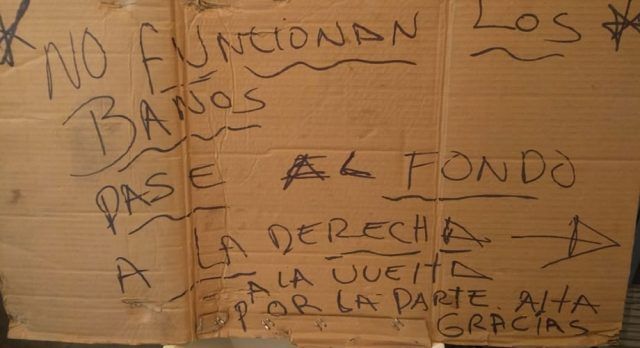 NO FUNCIONAN LOS
BAÑOS
PASE AL FONDO
A LA DERECHA
A LA VUELTA
POR LA PARTE ALTA
GRACIAS